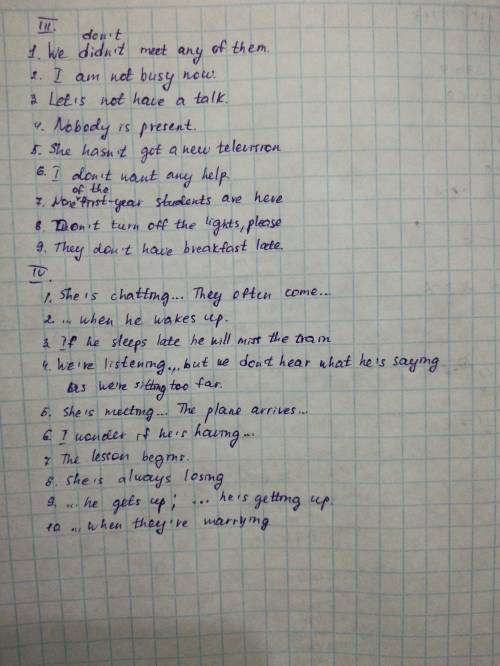 III.
don't
1. We didn't meet any of them.
2. I am not busy now.
3. Let's not have a talk.
4. Nobody is present.
5. She hasn't got a new television
6. I don't want any help
of the
7. None first-year students are here
8. Don't turn off the lights, please
9. They don't have breakfast late.
IV.
1. She is chatting... They often come...
2. ... when he wakes up.
3. If he sleeps late he will miss the train
4. We're listening... but we don't hear what he's saying
as we're sitting too far.
5. She is meeting... The plane arrives...
6. I wonder if he is having...
7. The lesson begins.
8. She is always losing
9. ... he gets up; ... he is getting up.
10. ... when they're marrying